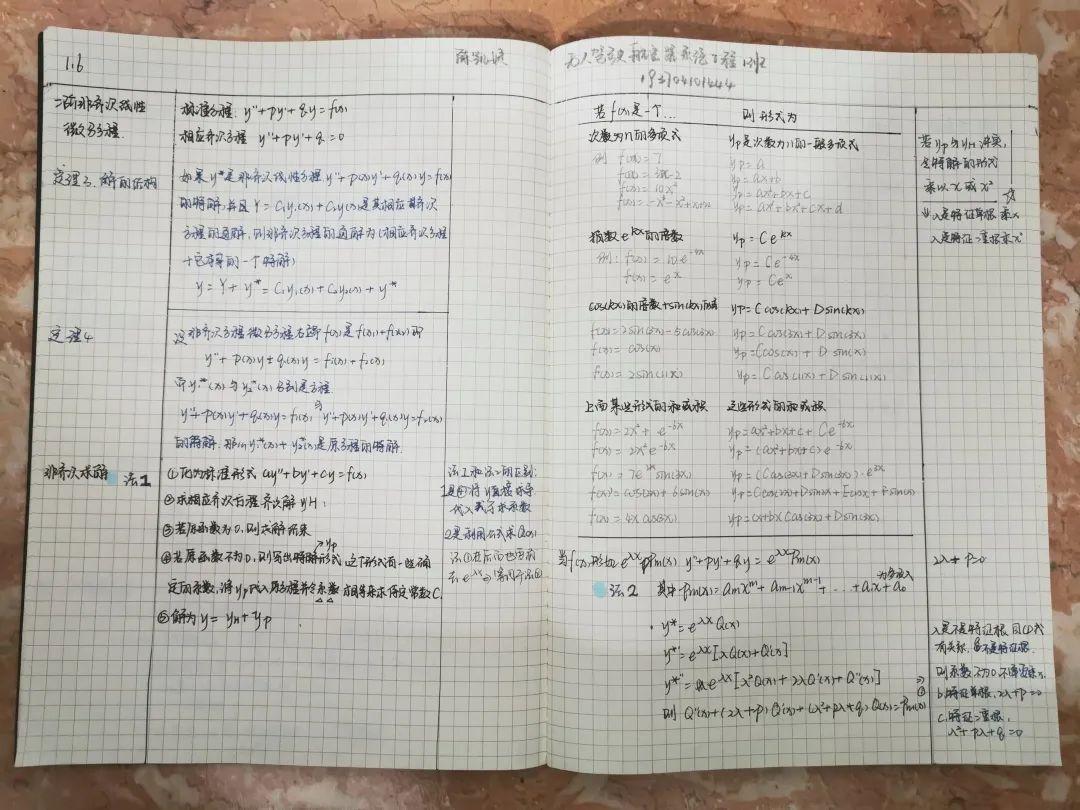 1.6
二阶非齐次线性
微分方程.
标准方程: y''+py'+qy=f(x)
相应齐次方程 y''+py'+q=0
定理3. 解的结构
如果y*是非齐次线性方程 y''+p(x)y'+q(x)y=f(x)
的特解,并且Y=C₁y₁(x)+C₂y₂(x)是其相应齐次
方程的通解,则非齐次方程的通解为(相应齐次方程
+它本身的一个特解)
y=Y+y*=C₁y₁(x)+C₂y₂(x)+y*
定理4
设非齐次方程微分方程右端f(x)是f₁(x)+f₂(x)即
y''+p(x)y'+q(x)y=f₁(x)+f₂(x)
而y₁*(x)与y₂*(x)分别是方程
y''+p(x)y'+q(x)y=f₁(x) 与 y''+p(x)y'+q(x)y=f₂(x)
的特解.那么y₁*(x)+y₂*(x)是原方程的特解.
非齐次求解 法1
①化为标准形式 ay''+by'+cy=f(x)
②求相应齐次方程齐次解yH:
③若右函数为0.则该解所求
④若原函数不为0,则写出特解形式yp 这个形式有一些确
定的系数,将yp代入原方程并令系数相等来求待定常数C.
⑤解为y=yH+yp
法1和法2的区别:
1是④将y直接求导
代入式子求系数
2是利用公式求Q(x)
无人驾驶航空器系统工程1班
若f(x)是一个... 则形式为
次数为n的多项式 yp是次数为n的一般多项式
例 f(x)=7 yp=a
f(x)=3x-2 yp=ax+b
f(x)=10x² yp=ax²+bx+c
f(x)=-x³-x²+x+22 yp=ax³+bx²+cx+d
指数e^{kx}的倍数 yp=Ce^{kx}
例: f(x)=10e^{-4x} yp=Ce^{-4x}
f(x)=e^x yp=Ce^x
cos(kx)的倍数+sin(kx)的倍 yp=Ccos(kx)+Dsin(kx)
f(x)=2sin(3x)-5cos(3x) yp=Ccos(3x)+Dsin(3x)
f(x)=cos(x) yp=Ccos(x)+Dsin(x)
f(x)=2sin(11x) yp=Ccos(11x)+Dsin(11x)
上面某些形式的和或积 这些形式的和或积
f(x)=2x²+e^{-6x} yp=ax²+bx+c+Ce^{-6x}
f(x)=2x²e^{-6x} yp=(ax²+bx+c)e^{-6x}
f(x)=7e^{3x}sin(3x) yp=(Ccos(3x)+Dsin(3x))·e^{3x}
f(x)=cos(2x)+6sin(x) yp=Ccos(2x)+Dsin2x+Ecosx+Fsin(x)
f(x)=4xcos(3x) yp=(x+b)(Ccos(3x)+Dsin(3x)
若yp与yH冲突,
令特解的形式
乘以x或x²
入是特征单根乘x
入是特征二重根乘x²
当f(x)形如e^{λx}Pm(x) y''+py'+qy=e^{λx}Pm(x)
2λ+p=0
法2 其中Pm(x)=a_m x^m+a_{m-1}x^{m-1}+...+a₁x+a₀
为多项式
y*=e^{λx}Q(x)
y*'=e^{λx}[λQ(x)+Q'(x)]
y*''=e^{λx}[λ²Q(x)+2λQ'(x)+Q''(x)]
则 Q''(x)+(2λ+p)Q'(x)+(λ²+pλ+q)Q(x)=Pm(x)
入是不是特征根 同(1)式
有关系,
则系数不为0
b.特征单根,2λ+p≠0
c.特征二重根,
λ²+pλ+q=0